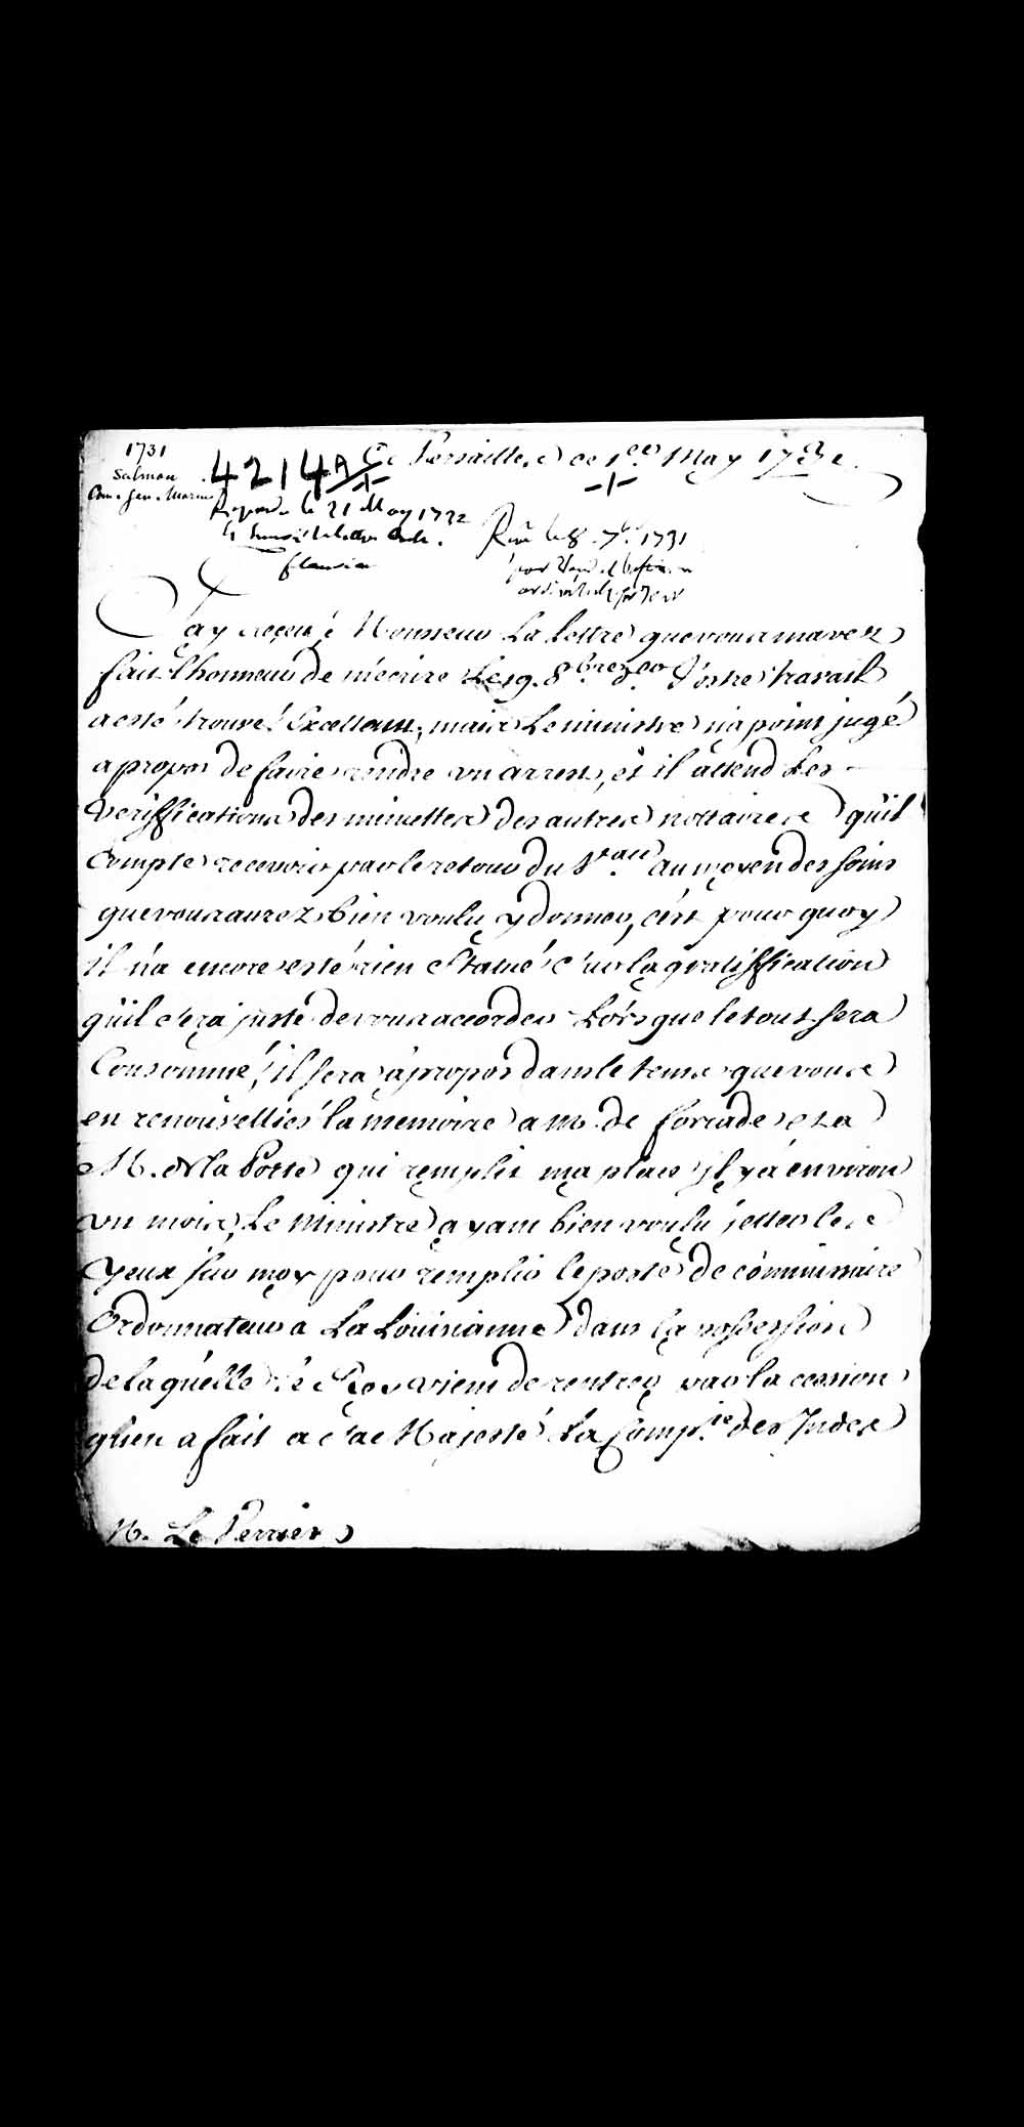 1731
Salmon
4214A
Versailles ce 1er May 1731
Repondu le 21 May 1732
Reçu le 8. 7bre 1731
J'ay reçeu, Monsieur La lettre que vous m'avez
fait l'honneur de m'écrire Le 19. 8bre der. Vostre travail
a esté trouvé Excellent, mais Le ministre n'a point jugé
a propos de faire rendre un arrest, et il attend Les
veriffications des minuttes des autres nottaires qu'il
Compte recevoir par le retour du Vau. au moyen des soins
que vous aurez bien voulu y donner, c'est pour quoy
il n'a encore esté rien Statué sur la gratiffication
qu'il sera juste de vous accorder Lorsque le tout sera
Consommé, il sera à propos dans le tems que vous
en renouvelliés la memoire a M. de forcade et a
M. de la Porte qui remplit ma place il y a environ
un mois, Le Ministre ayant bien voulu jetter les
yeux sur moy pour remplir le poste de commissaire
Ordonnateur a La Louisianne dans la possession
de laquelle le Roy vient de rentrer par la cession
qu'en a fait a sa Majesté La Comp.ie des Indes
M. Le Perrier